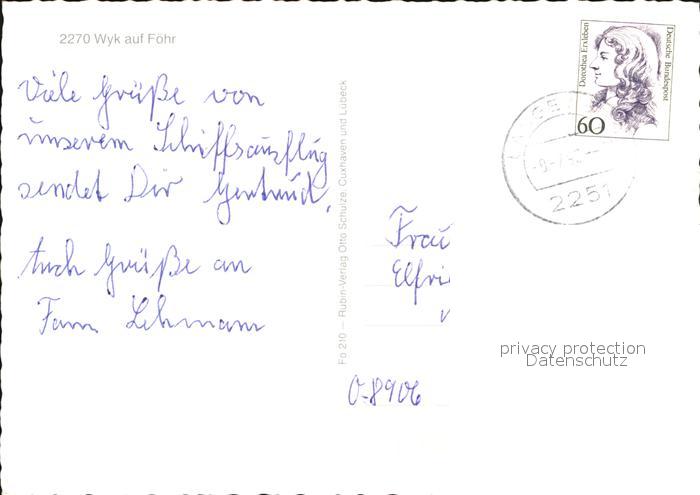 2270 Wyk auf Föhr
Viele Grüße von
unserem Schiffsausflug
sendet Dir Gertrud.
Auch Grüße an
Fam. Lehmann
Fo 210 — Rubin-Verlag Otto Schulze: Cuxhaven und Lübeck
Dorothea Erxleben
Deutsche Bundespost
60
2251
Frau
Elfri
O-8906
privacy protection
Datenschutz